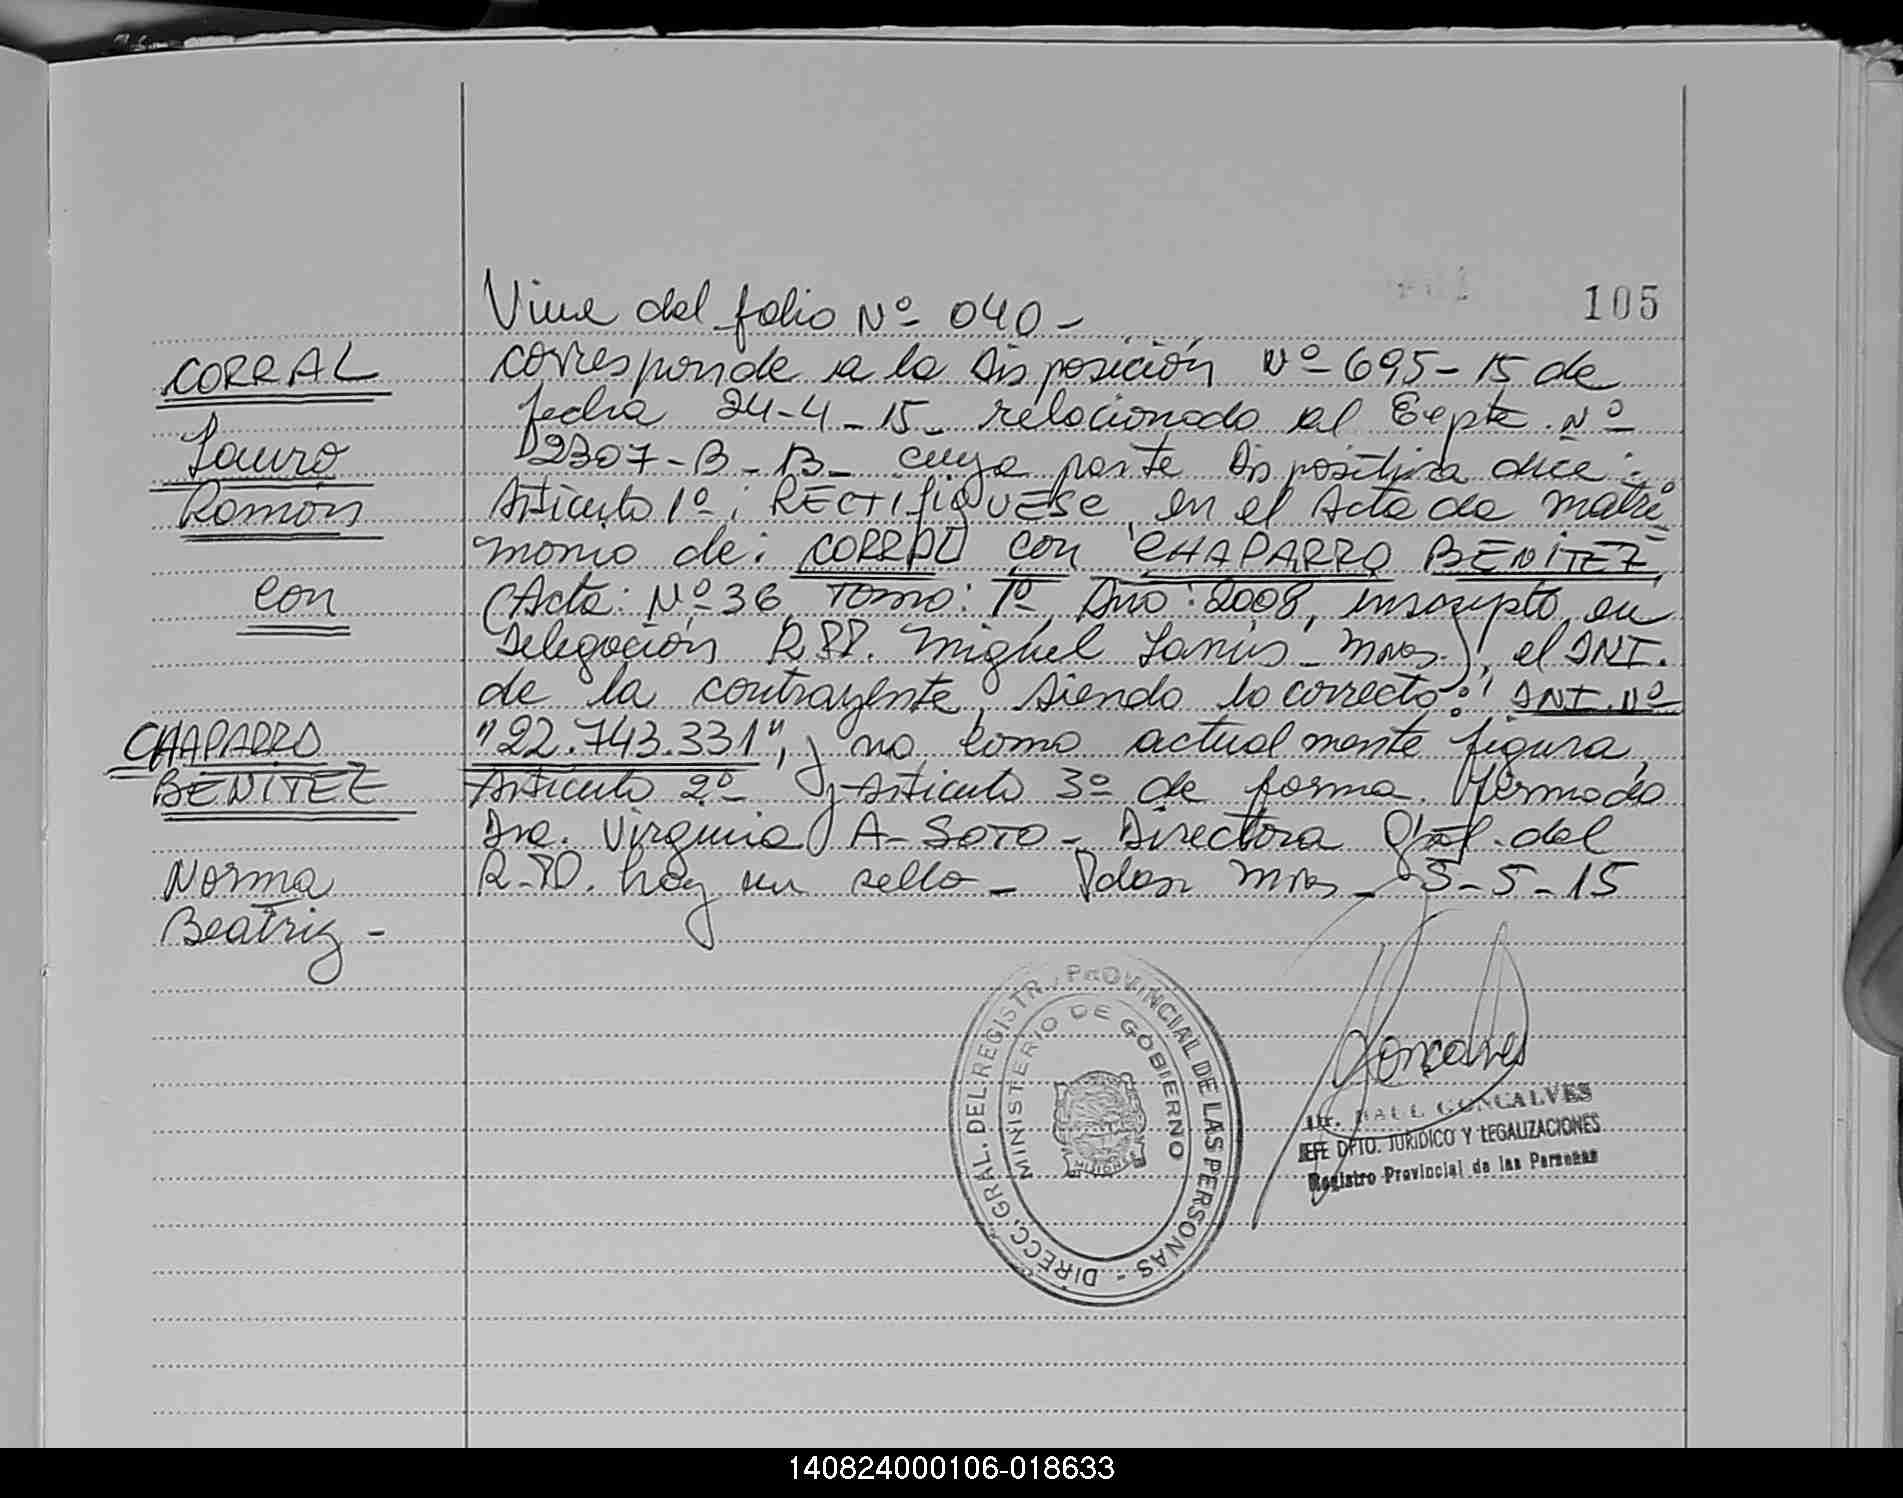 105
Viene del folio Nº 040 -
CORRAL
Lauro
Ramón
con
CHAPARRO
BENITEZ
Norma
Beatriz -
corresponde a la Disposición Nº 695-15 de
fecha 24-4-15 relacionado al Expte. Nº
2307-B-13 cuya parte Dispositiva dice:
Articulo 1º: RECTIFIQUESE, en el Acta de matri=
monio de: CORRAL con CHAPARRO BENITEZ,
(Acta: Nº 36, Tomo: 1º, Año: 2008, inscripto, en
Delegación R.PP. Miguel Lanús - Mnes.), el DNI.
de la contrayente, siendo lo correcto: DNI. Nº
"22.743.331", y no como actualmente figura,
Articulo 2º y Articulo 3º de forma. Firmado
Dra. Virginia A- SOTO - Directora Gral. del
R-PP. hay un sello - Pdas Mnes - 5-5-15
DIRECC. GRAL. DEL REGISTR. PROVINCIAL DE LAS PERSONAS -
MINISTERIO DE GOBIERNO
MISIONES
Goncalves
Dr. RAUL GONCALVES
JEFE DPTO. JURIDICO Y LEGALIZACIONES
Registro Provincial de las Personas
140824000106-018633